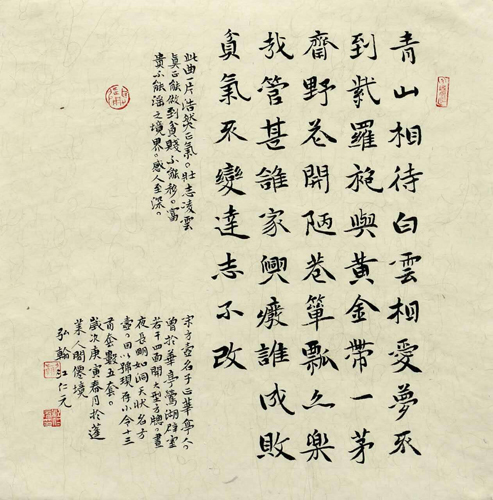 青山相待白雲相愛夢不
到紫羅袍與黃金帶一茅
齋野花開陋巷簞瓢亦樂
哉管甚誰家興廢誰成敗
貧氣不變達志不改
此曲一片浩然正氣。壯志凌雲
真正能做到貧賤不能移。富
貴不能淫之境界。感人至深。
宋方壺名子正華亭人。
曾於華亭鶯湖辟室
若干四面開大型方牕。晝
夜長明如洞天狀名方
壺。因以號現存小令十三
首套數五套。
歲次庚寅春月於蓬
萊人間僊境
弘翰江仁元